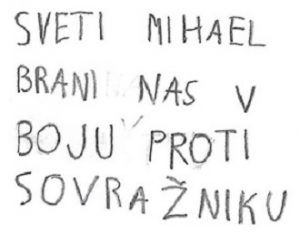 SVETI MIHAEL
BRANI NAS V
BOJU PROTI
SOVRAŽNIKU